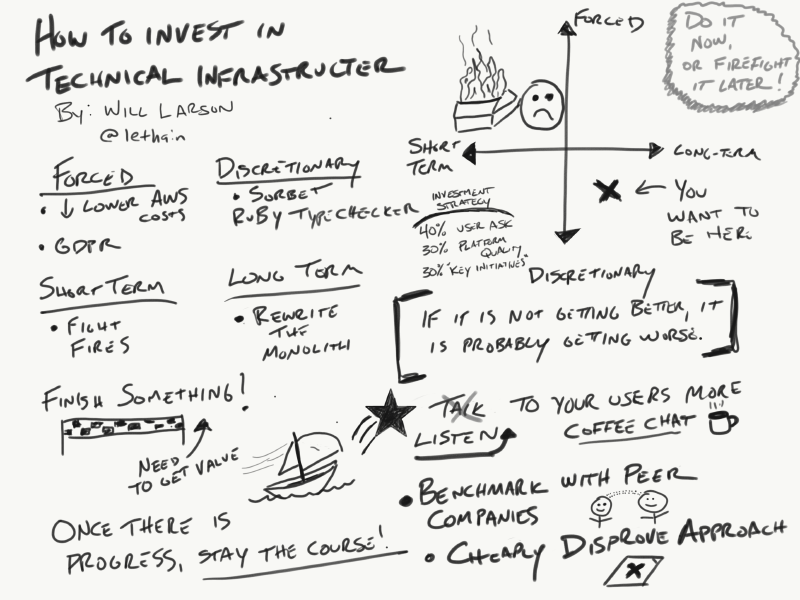 HOW TO INVEST IN
TECHNICAL INFRASTRUCTER
By: WILL LARSON
@lethain
FORCED
• ↓ LOWER AWS
COSTS
• GDPR
DISCRETIONARY
• SORBET
RUBY TYPECHECKER
SHORT TERM
• FIGHT
FIRES
LONG TERM
• REWRITE
THE
MONOLITH
FINISH SOMETHING!
NEED
TO GET VALUE
ONCE THERE IS
PROGRESS, STAY THE COURSE!
FORCED
SHORT
TERM
LONG-TERM
DISCRETIONARY
X ← YOU
WANT TO
BE HERE
DO IT
NOW,
OR FIREFIGHT
IT LATER!
INVESTMENT
STRATEGY
40% USER ASK
30% PLATFORM
QUALITY
30% "KEY INITIATIVES"
IF IT IS NOT GETTING BETTER, IT
IS PROBABLY GETTING WORSE.
TALK TO YOUR USERS MORE
LISTEN
COFFEE CHAT
• BENCHMARK WITH PEER
COMPANIES
• CHEAPLY DISPROVE APPROACH
X